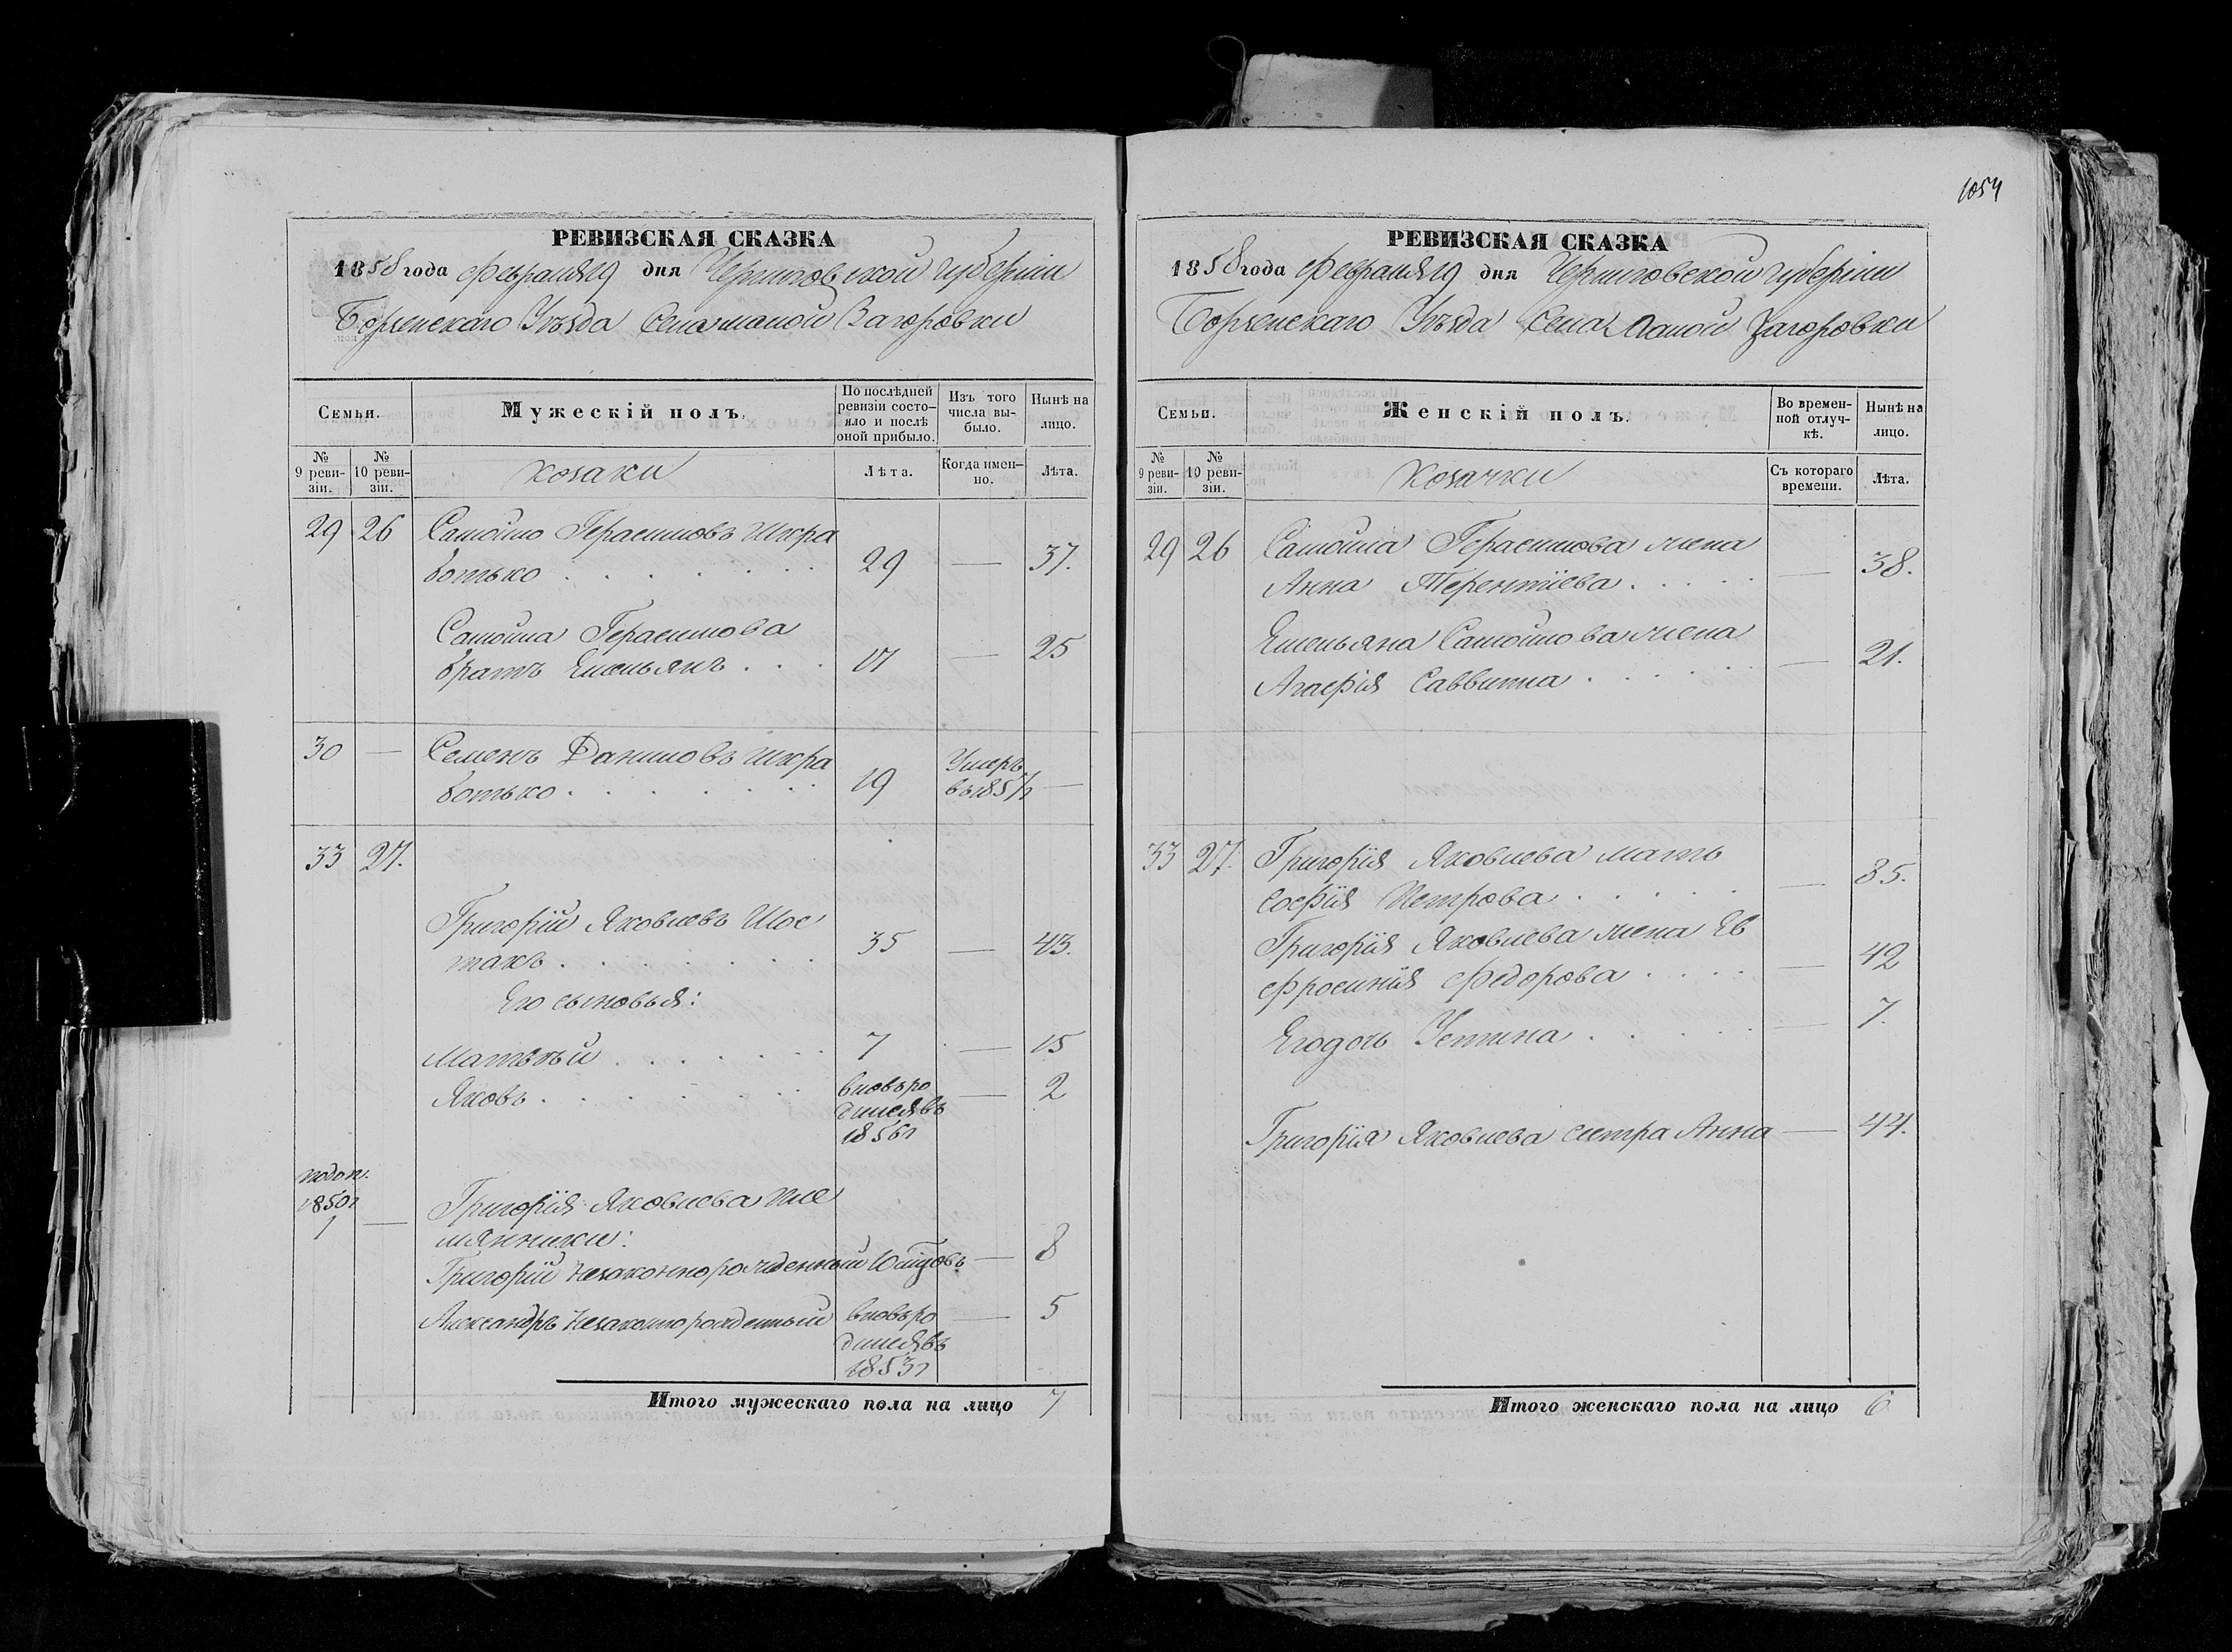 1054
РЕВИЗСКАЯ СКАЗКА
1858 года Февраля 19 дня Черниговской губерніи
Борзенскаго Уѣзда Села малой Загоровки
Семьи.
Мужескій полъ.
По послѣдней ревизіи состояло и послѣ оной прибыло.
Изъ того числа выбыло.
Нынѣ на лицо.
№ 9 ревизіи.
№ 10 ревизіи.
козаки
Лѣта.
Когда именно.
Лѣта.
29 26 Самойло Герасимовъ Шкра
ботько 29 — 37.
Самойла Герасимова
братъ Емельянъ 17 — 25
30 — Семенъ Даниловъ Шкра
ботько 19 Умеръ въ 1857 г —
33 27.
Григорій Яковлевъ Шос
такъ 35 — 43.
Его сыновья:
Матвѣй 7 — 15
Яковъ вновь ро — 2
дился въ
1856 г
по доп.
1850 г
1 — Григорія Яковлева пле
мянники:
Григорій незаконнорожденный — 8
Александръ незаконнорожденный вновь ро — 5
дился въ
1853 г
Итого мужескаго пола на лицо 7
РЕВИЗСКАЯ СКАЗКА
1858 года Февраля 19 дня Черниговской губерніи
Борзенскаго Уѣзда Села Малой Загоровки
Семьи.
Женскій полъ.
Во временной отлучкѣ.
Нынѣ на лицо.
№ 9 ревизіи.
№ 10 ревизіи.
козачки
Съ котораго времени.
Лѣта.
29 26 Самойла Герасимова жена
Анна Терентіева — 38.
Емельяна Самойлова жена
Агафія Саввина — 21.
33 27. Григорія Яковлева мать
Софія Петрова — 85.
Григорія Яковлева жена Ев
фросинія Федорова — 42
Его дочь Устина — 7.
Григорія Яковлева сестра Анна — 44.
Итого женскаго пола на лицо 6